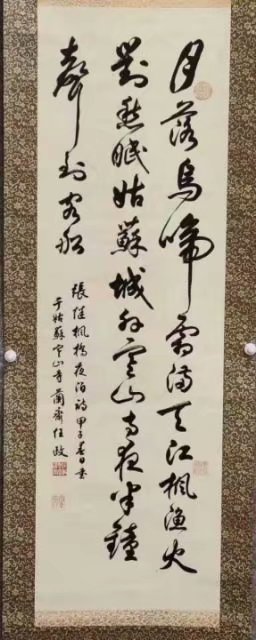 月落烏啼霜滿天江楓漁火
對愁眠姑蘇城外寒山寺夜半鐘
聲到客船
張継楓橋夜泊詩甲子春日書
于姑蘇寒山寺蘭齋任政